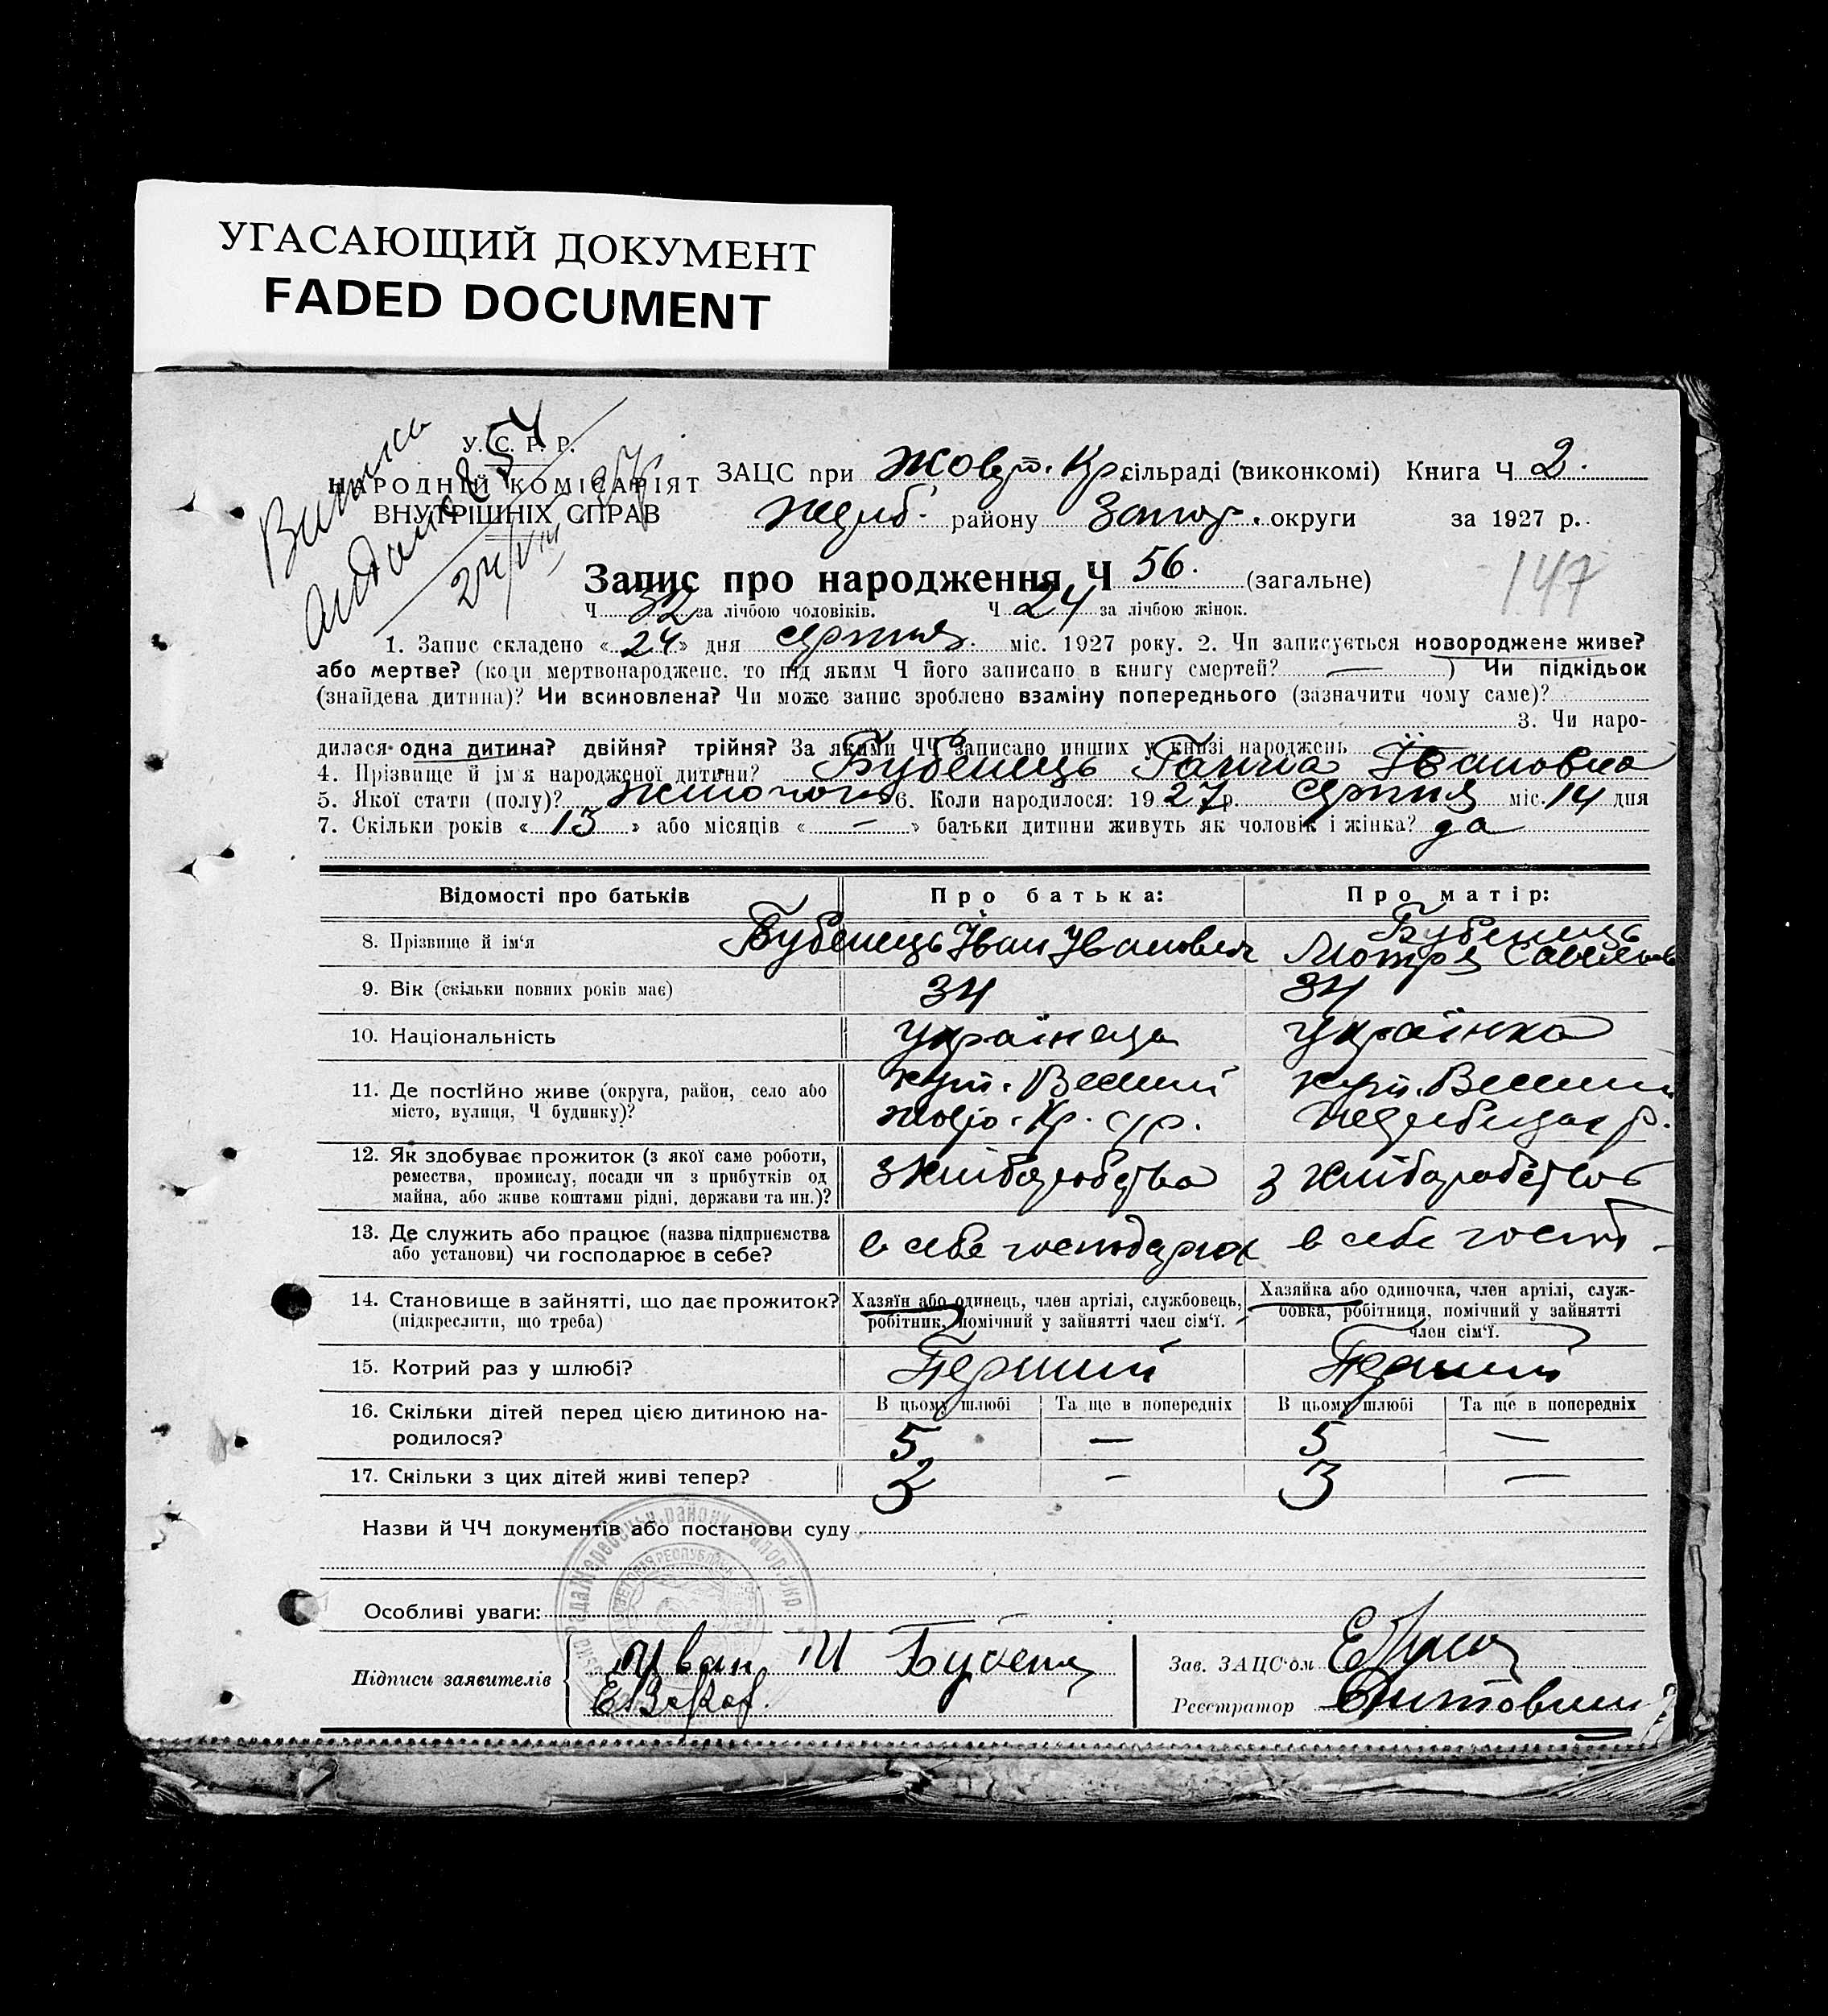 УГАСАЮЩИЙ ДОКУМЕНТ
FADED DOCUMENT
У. С. Р. Р.
НАРОДНІЙ КОМІСАРІЯТ
ВНУТРІШНІХ СПРАВ
ЗАЦС при Жовт. Кр. сільраді (виконкомі) Книга Ч 2.
району Запор. округи за 1927 р.
Запис про народження Ч 56. (загальне)
147
Ч 32 за лічбою чоловіків. Ч 24 за лічбою жінок.
1. Запис складено «24» дня серпня міс. 1927 року. 2. Чи записується новороджене живе?
або мертве? (коли мертвонароджене, то під яким Ч його записано в книгу смертей? — ) Чи підкідьок
(знайдена дитина)? Чи всиновлена? Чи може запис зроблено взаміну попереднього (зазначити чому саме)?
3. Чи наро-
дилася одна дитина? двійня? трійня? За якими ЧЧ записано инших у книзі народжень
4. Прізвище й ім'я народженої дитини? Бубенець Ганна Івановна
5. Якої стати (полу)? жіночої 6. Коли народилося: 1927 р. серпня міс. 14 дня
7. Скільки років «13» або місяців «—» батьки дитини живуть як чоловік і жінка? да
Відомості про батьків Про батька: Про матір:
8. Прізвище й ім'я Бубенець Іван Іванович Бубенець
Мотря
9. Вік (скільки повних років має) 34 34
10. Національність Українець Українка
11. Де постійно живе (округа, район, село або
місто, вулиця, Ч будинку)?
хут. Веселий хут. Веселий
12. Як здобуває прожиток (з якої саме роботи,
ремества, промислу, посади чи з прибутків од
майна, або живе коштами рідні, держави та ин.)?
з хліборобства з хліборобства
13. Де служить або працює (назва підприємства
або установи) чи господарює в себе?
в себе господарює в себе госп
14. Становище в зайнятті, що дає прожиток?
(підкреслити, що треба)
Хазяїн або одинець, член артілі, службовець,
робітник, помічний у зайнятті член сім'ї.
Хазяйка або одиночка, член артілі, служ-
бовка, робітниця, помічний у зайнятті
член сім'ї.
15. Котрий раз у шлюбі? Перший Перший
16. Скільки дітей перед цією дитиною на-
родилося?
В цьому шлюбі Та ще в попередніх В цьому шлюбі Та ще в попередніх
5 — 5 —
17. Скільки з цих дітей живі тепер? 3 - 3 —
Назви й ЧЧ документів або постанови суду
Особливі уваги:
Підписи заявителів Иван И Бубенец
Зав. ЗАЦС'ом
Реєстратор